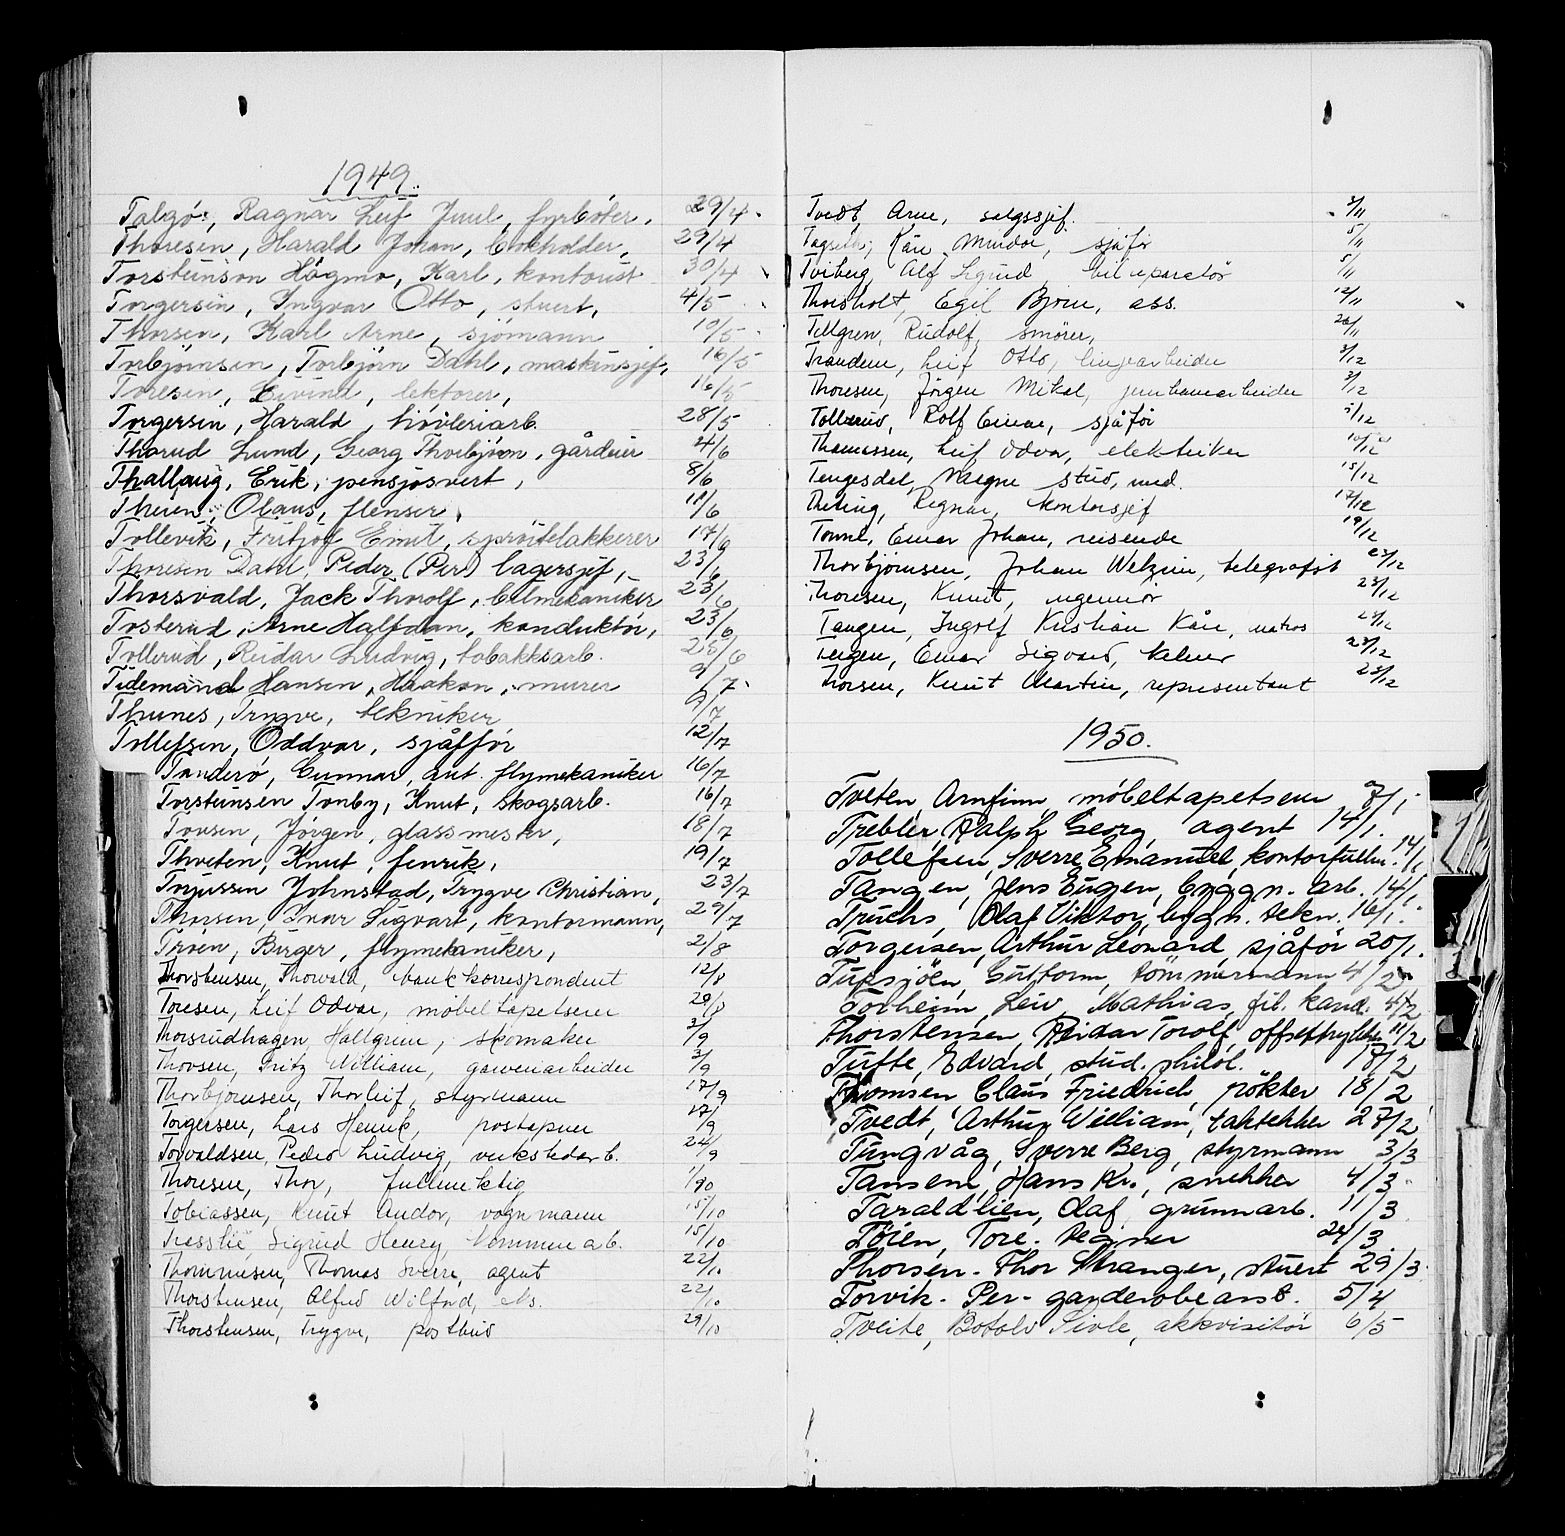 1949.
Talgö, Ragnar Leif Juul, fyrböter. 29/4.
Thoresen, Harald Johan, bokholder, 29/4
Torsteinson Högmo, Karl, kontorist 30/4
Torgersen, Ingvar Otto, stuert, 4/5
Thorsen, Karl Arne, sjömann 10/5
Torbjörnsen, Torbjörn Dahl, maskinsjef, 16/5
Toresen, Eivind, lektorer, 16/5
Torgersen, Harald, hövleriarb. 28/5
Thorud Lund, Georg Thorbjörn, gårdeier 4/6
Thallaug, Erik, pensjosvert, 8/6
Theien, Olaus, flenser, 11/6
Tollevik, Fritjof Emil, spröitelakkerer 17/6
Thoresen Dahl, Peder (Per) lagersjef, 23/6
Thorsvald, Jack Thorolf, bilmekaniker 23/6
Tosterud, Arne Halfdan, konduktör, 23/6
Tollerud, Reidar Ludvig, tobakksarb. 25/6
Tidemand Hansen, Haakon, murer 9/7
Thunes, Trygve, tekniker 9/7
Tollefsen, Oddvar, sjåfför 12/7
Tanderö, Gunnar, aut. flymekaniker 16/7
Torsteinsen Tonby, Knut, skogsarb. 16/7
Jörgen, glassmester, 18/7
Thveten, Knut, fenrik, 19/7
Torjussen Johnstad, Trygve Christian, 23/7
Thorsen, Einar Sigvart, kontormann, 29/7
Troen, Birger, flymekaniker, 2/8
Thorstensen, Thorvald, bankkorrespondent 12/8
Toresen, Leif Odvar, möbeltapetserer 20/8
Thorsrudhagen, Hallgrim, skomaker 3/9
Thovsen, Fritz William, garveriarbeider 3/9
Thorbjörnsen, Thorleif, styrmann 17/9
Torgersen, Lars Henrik, poståpner 17/9
Torvaldsen, Peder Ludvig, verkstedarb. 24/9
Thoresen, Thor, fullmektig 1/10
Tobiassen, Knut Andor, vognmann 15/10
Sigurd Henry 15/10
Thommesen, Thomas Sverre, agent 22/10
Thorstensen, Alfred Wilford, 22/10
Thorstensen, Trygve, postbud 29/10
Tvedt, Arne, salgssjef. 3/11
Kåre sjåför 5/11
Tviberg, Alf Sigurd, bilreparatör 5/11
Thorsholt, Egil Björn, ass. 12/11
Tillgren, Rudolf, smörer, 26/11
Leif Otto, linjearbeider 3/12
Thoresen, Jörgen Mikal, jernbanearbeider 3/12
Tollerud, Rolf Einar, sjåför 5/12
Thomassen, Leif Odvar, elektriker 10/12
Tengesdal, Magne stud. med. 15/12
Ragnar, kontorsjef 17/12
Tomml, Einar Johan, reisende 19/12
Thorbjörnsen, Johan Welzin, telegrafist 23/12
Thoresen, Knut, ingeniör 23/12
Tangen, Ingolf Kristian Kåre, matros 23/12
Teigen, Einar Sigvard, kelner 23/12
Thorsen, Knut Martin, representant 23/12
1950.
Tveten, Arnfinn, möbeltapetserer 7/1
Trebler, Ralph Georg, agent 14/1.
Tollefsen, Sverre Emanuel, kontorfullm. 14/1
Tangen, Jens Eugen, byggn. arb. 14/1
Truchs, Olaf Viktor, bygn. tekn. 16/1.
Torgersen, Arthur Leonard, sjåför 20/1.
Tufsjöen, Guttorm, tömmermann 4/2
Torheim, Leiv Mathias, fil. kand. 4/2
Thorstensen, Reidar Torolf, offsettrykker 11/2
Tufte, Edvard, stud. philol. 17/2
Thomsen, Claus Friedrich, rökter 18/2
Tvedt, Arthur William, taktekker 27/2
Tungvåg, Sverre Berg, styrmann 3/3
Tansem, Hans Kr., snekker 4/3
Taraldlien, Olaf, grunnarb. 11/3
Töien, Tore. tegner 24/3
Thorsen. Thor Stranger, stuert 29/3
Torvik. Per. garderobeass. 5/4
Tveite, Botolv Sivle, akkvisitör 6/5